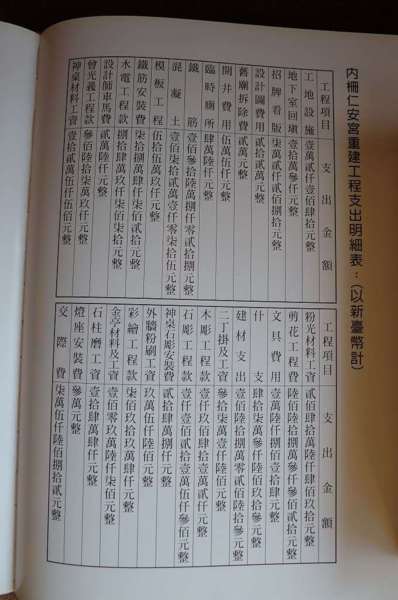 內柵仁安宮重建工程支出明細表：(以新臺幣計)
工程項目 支出金額
工地設施 壹萬貳仟壹佰肆拾元整
地下室回填 壹拾萬參仟元整
招牌看版 元整
設計圖費用 貳拾貳萬元整
舊廟拆除費 貳萬元整
開井費用 伍萬元整
臨時廁所 肆萬陸仟元整
鐵筋 元整
混凝土 壹佰柒拾貳萬壹仟零柒拾伍元整
模板工程 伍拾伍萬伍仟元整
鐵筋安裝費 元整
水電工程款 捌拾肆萬玖仟柒佰柒拾元整
設計師車馬費 貳萬元整
曾光義工程款 參佰陸拾柒萬玖仟元整
神桌材料工資 壹拾貳萬伍仟伍佰元整
工程項目 支出金額
粉光材料工資 貳佰肆拾肆萬肆仟肆佰玖拾元整
剪花工程費 陸佰陸拾捌萬參仟參佰貳拾元整
文具費用 壹萬陸仟捌佰壹拾肆元整
什支 肆拾柒萬參仟陸佰玖拾元整
建材支出 壹佰壹拾萬零貳佰陸拾參元整
二丁掛及工資 參拾柒萬壹仟零陸拾元整
木彫工程款
石彫工程款 壹佰肆拾壹萬伍仟參佰元整
神桌石彫安裝費 貳拾肆萬捌仟元整
外牆粉刷工資 玖萬伍仟陸佰元整
彩繪工程款 柒佰玖拾玖萬肆仟元整
金亭材料及工資 壹佰零玖萬陸仟柒佰元整
石柱磨工資 壹拾肆萬肆仟元整
燈座安裝費 參萬元整
交際費 柒萬伍仟陸佰捌拾貳元整